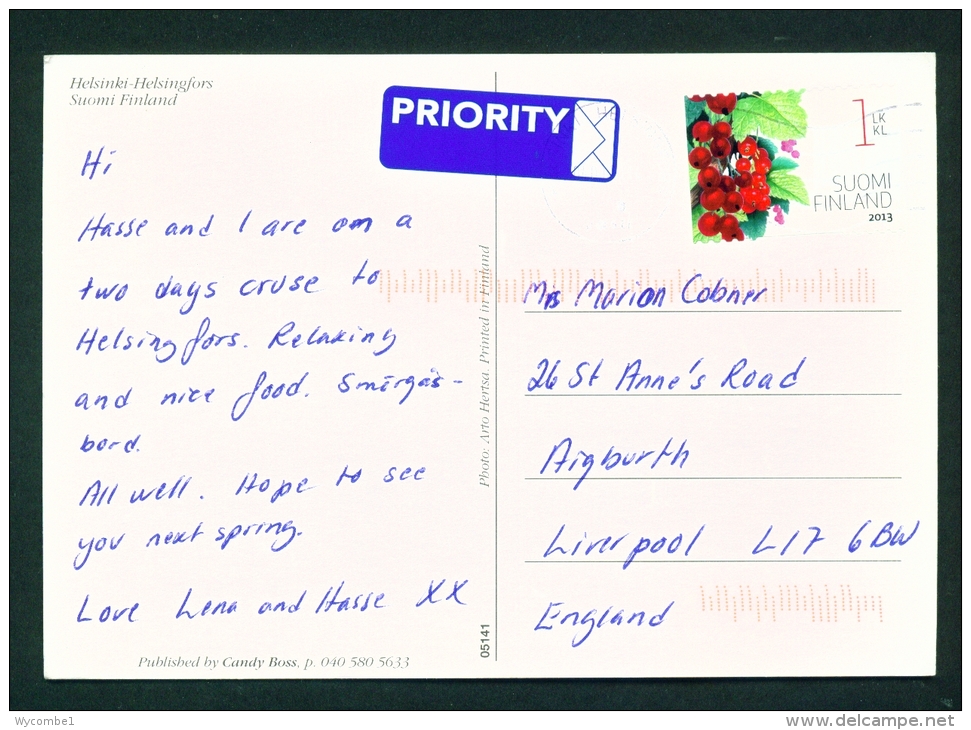 Helsinki-Helsingfors
Suomi Finland
PRIORITY
1 LK
KL
SUOMI
FINLAND
2013
Hi
Hasse and I are on a
two days cruse to
Helsingfors. Relaxing
and nice food. Smörgås-
bord.
All well. Hope to see
you next spring.
Love Lena and Hasse XX
Photo: Arto Hertsa. Printed in Finland
05141
Mrs Marion Cobner
26 St Anne's Road
Aigburth
Liverpool L17 6BW
England
Published by Candy Boss, p. 040 580 5633
Wycombe1
www.delcampe.net